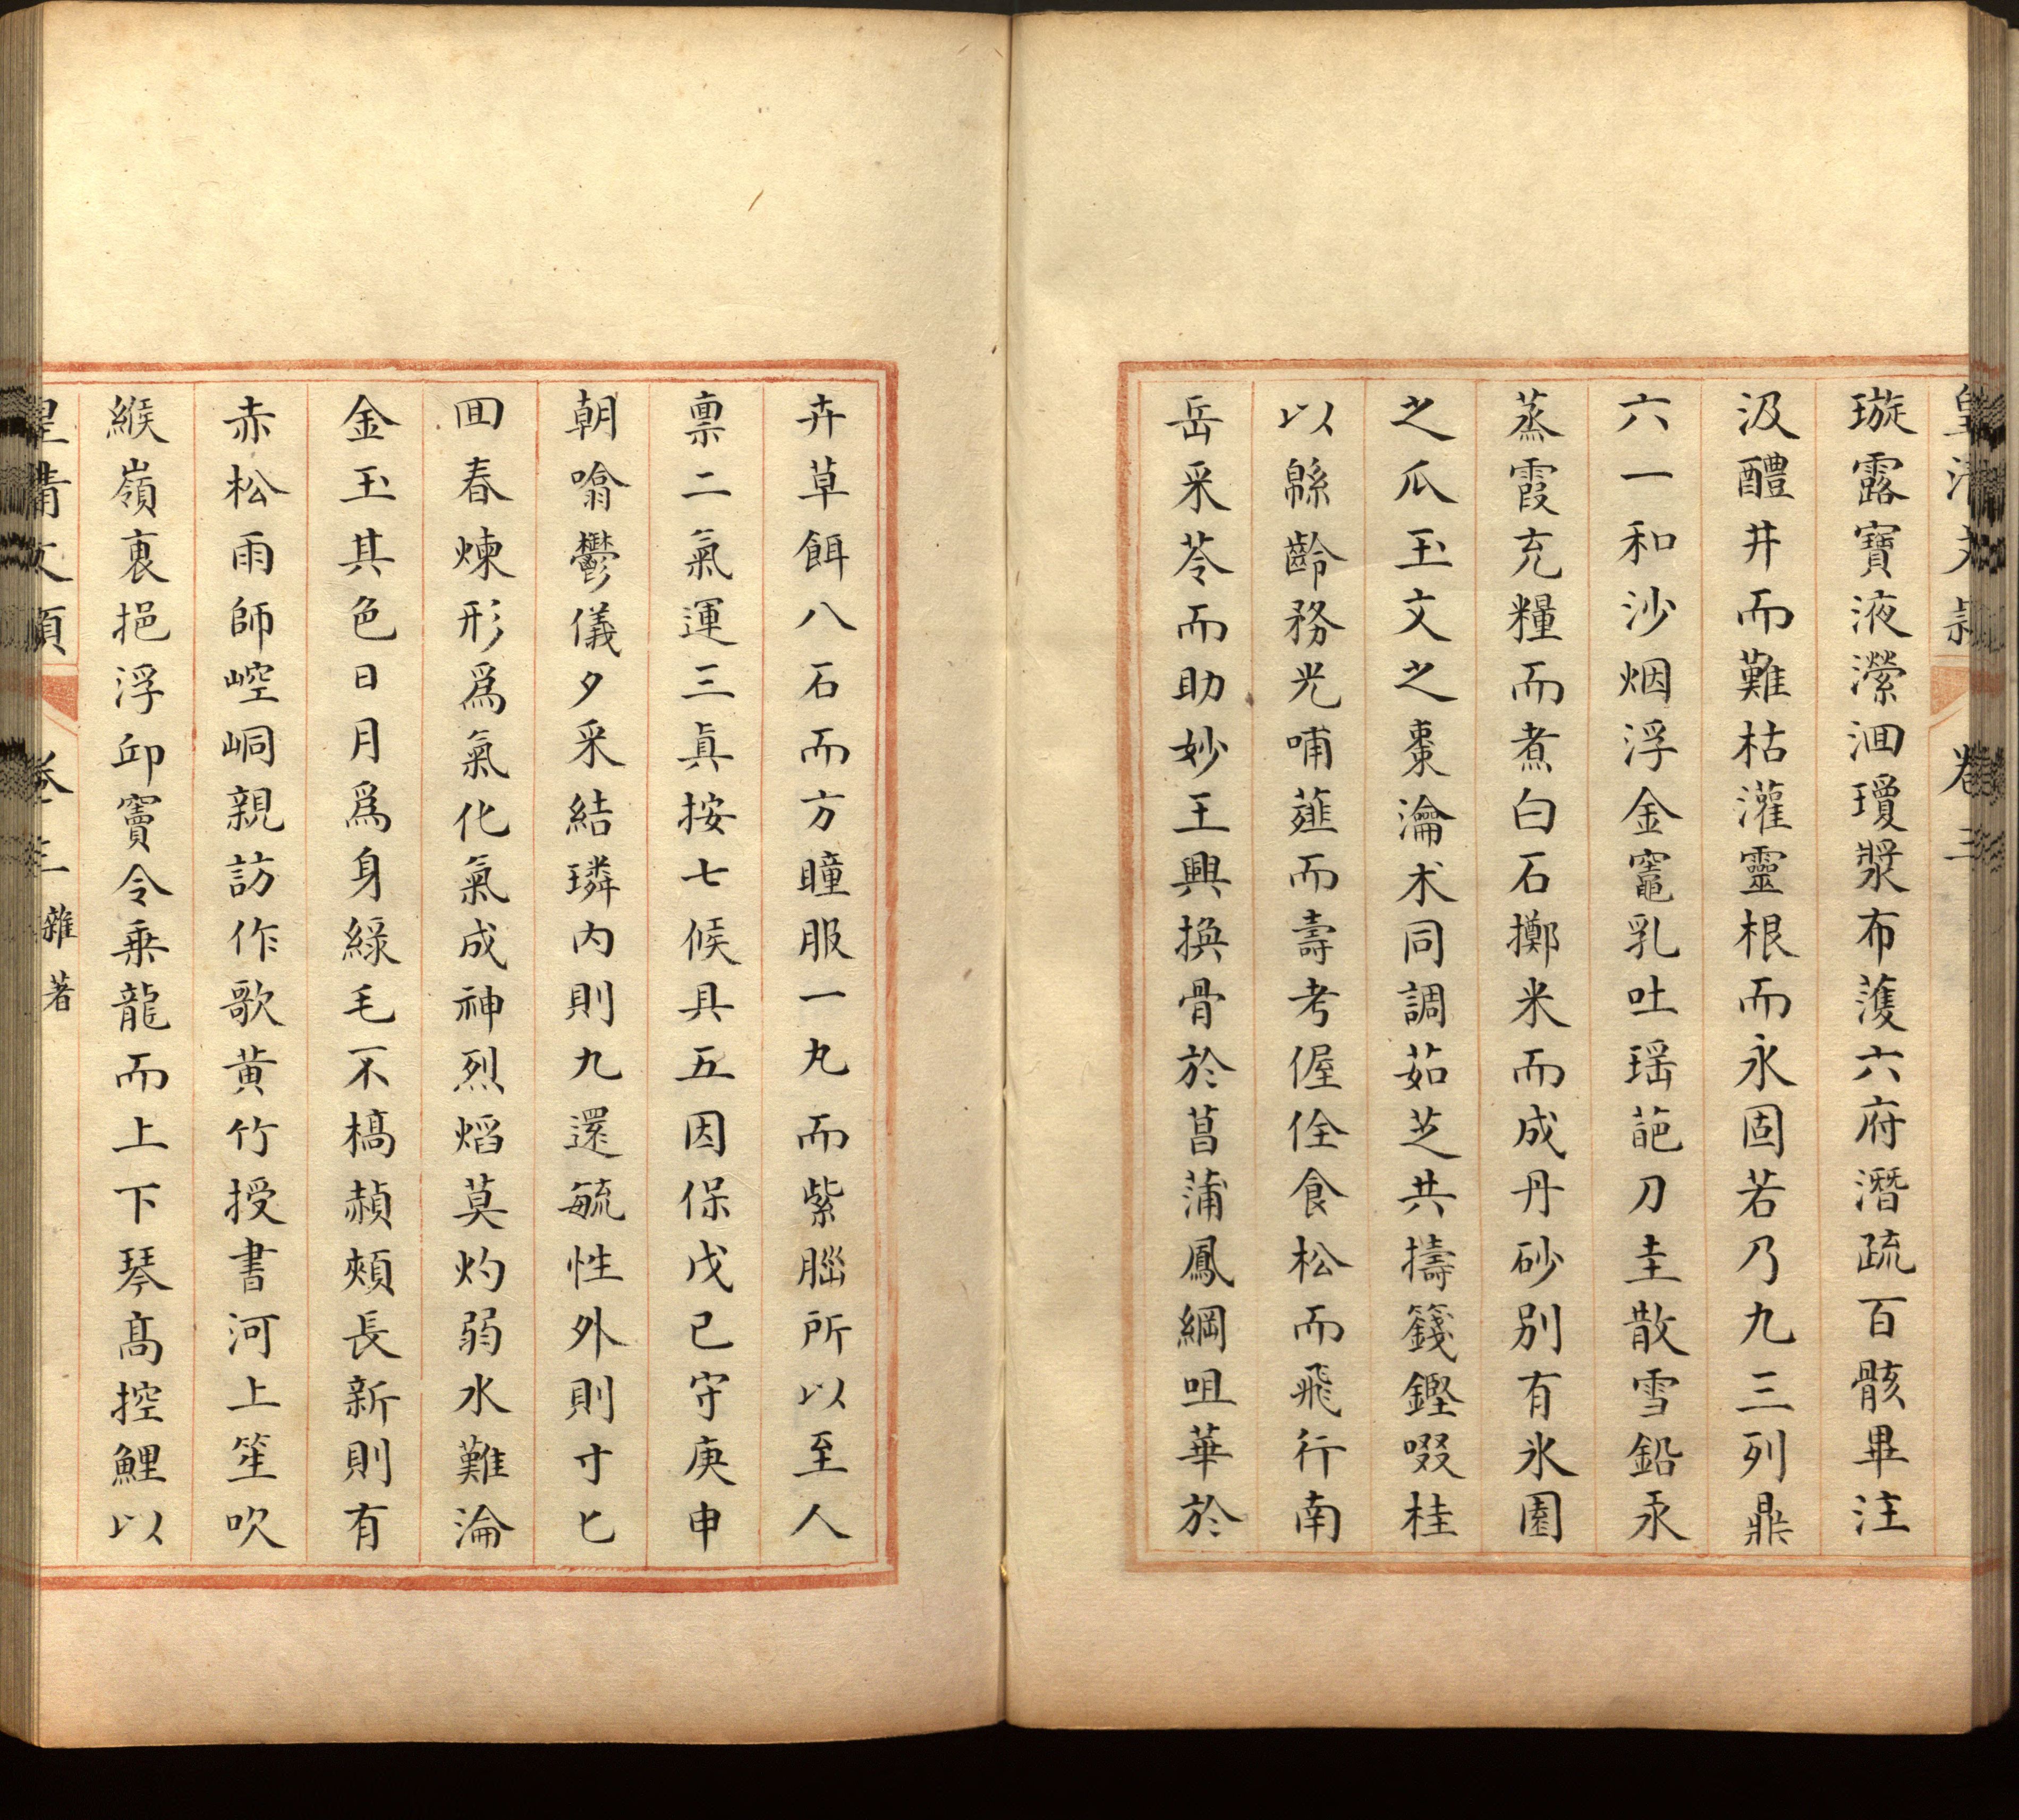 皇清文頴 卷三
璇露寶液瀠洄瓊漿布濩六府潛疏百骸畢注
汲醴井而難枯灌靈根而永固若乃九三列鼎
六一和沙烟浮金竈乳吐瑶葩刀圭散雪鉛汞
蒸霞充糧而煮白石擲米而成丹砂別有氷園
之瓜玉文之棗瀹术同調茹芝共擣籛鏗啜桂
以緜齡務光哺薤而壽考偓佺食松而飛行南
岳采苓而助妙王興換骨於菖蒲鳳綱咀華於
卉草餌八石而方瞳服一丸而紫腦所以至人
禀二氣運三眞按七候具五因保戊己守庚申
朝噏鬱儀夕采結璘内則九還毓性外則寸匕
回春煉形爲氣化氣成神烈熖莫灼弱水難淪
金玉其色日月爲身綠毛不槁赬頰長新則有
赤松雨師崆峒親訪作歌黄竹授書河上笙吹
緱嶺裏挹浮邱竇令乗龍而上下琴髙控鯉以
皇清文頴 卷三 雜著